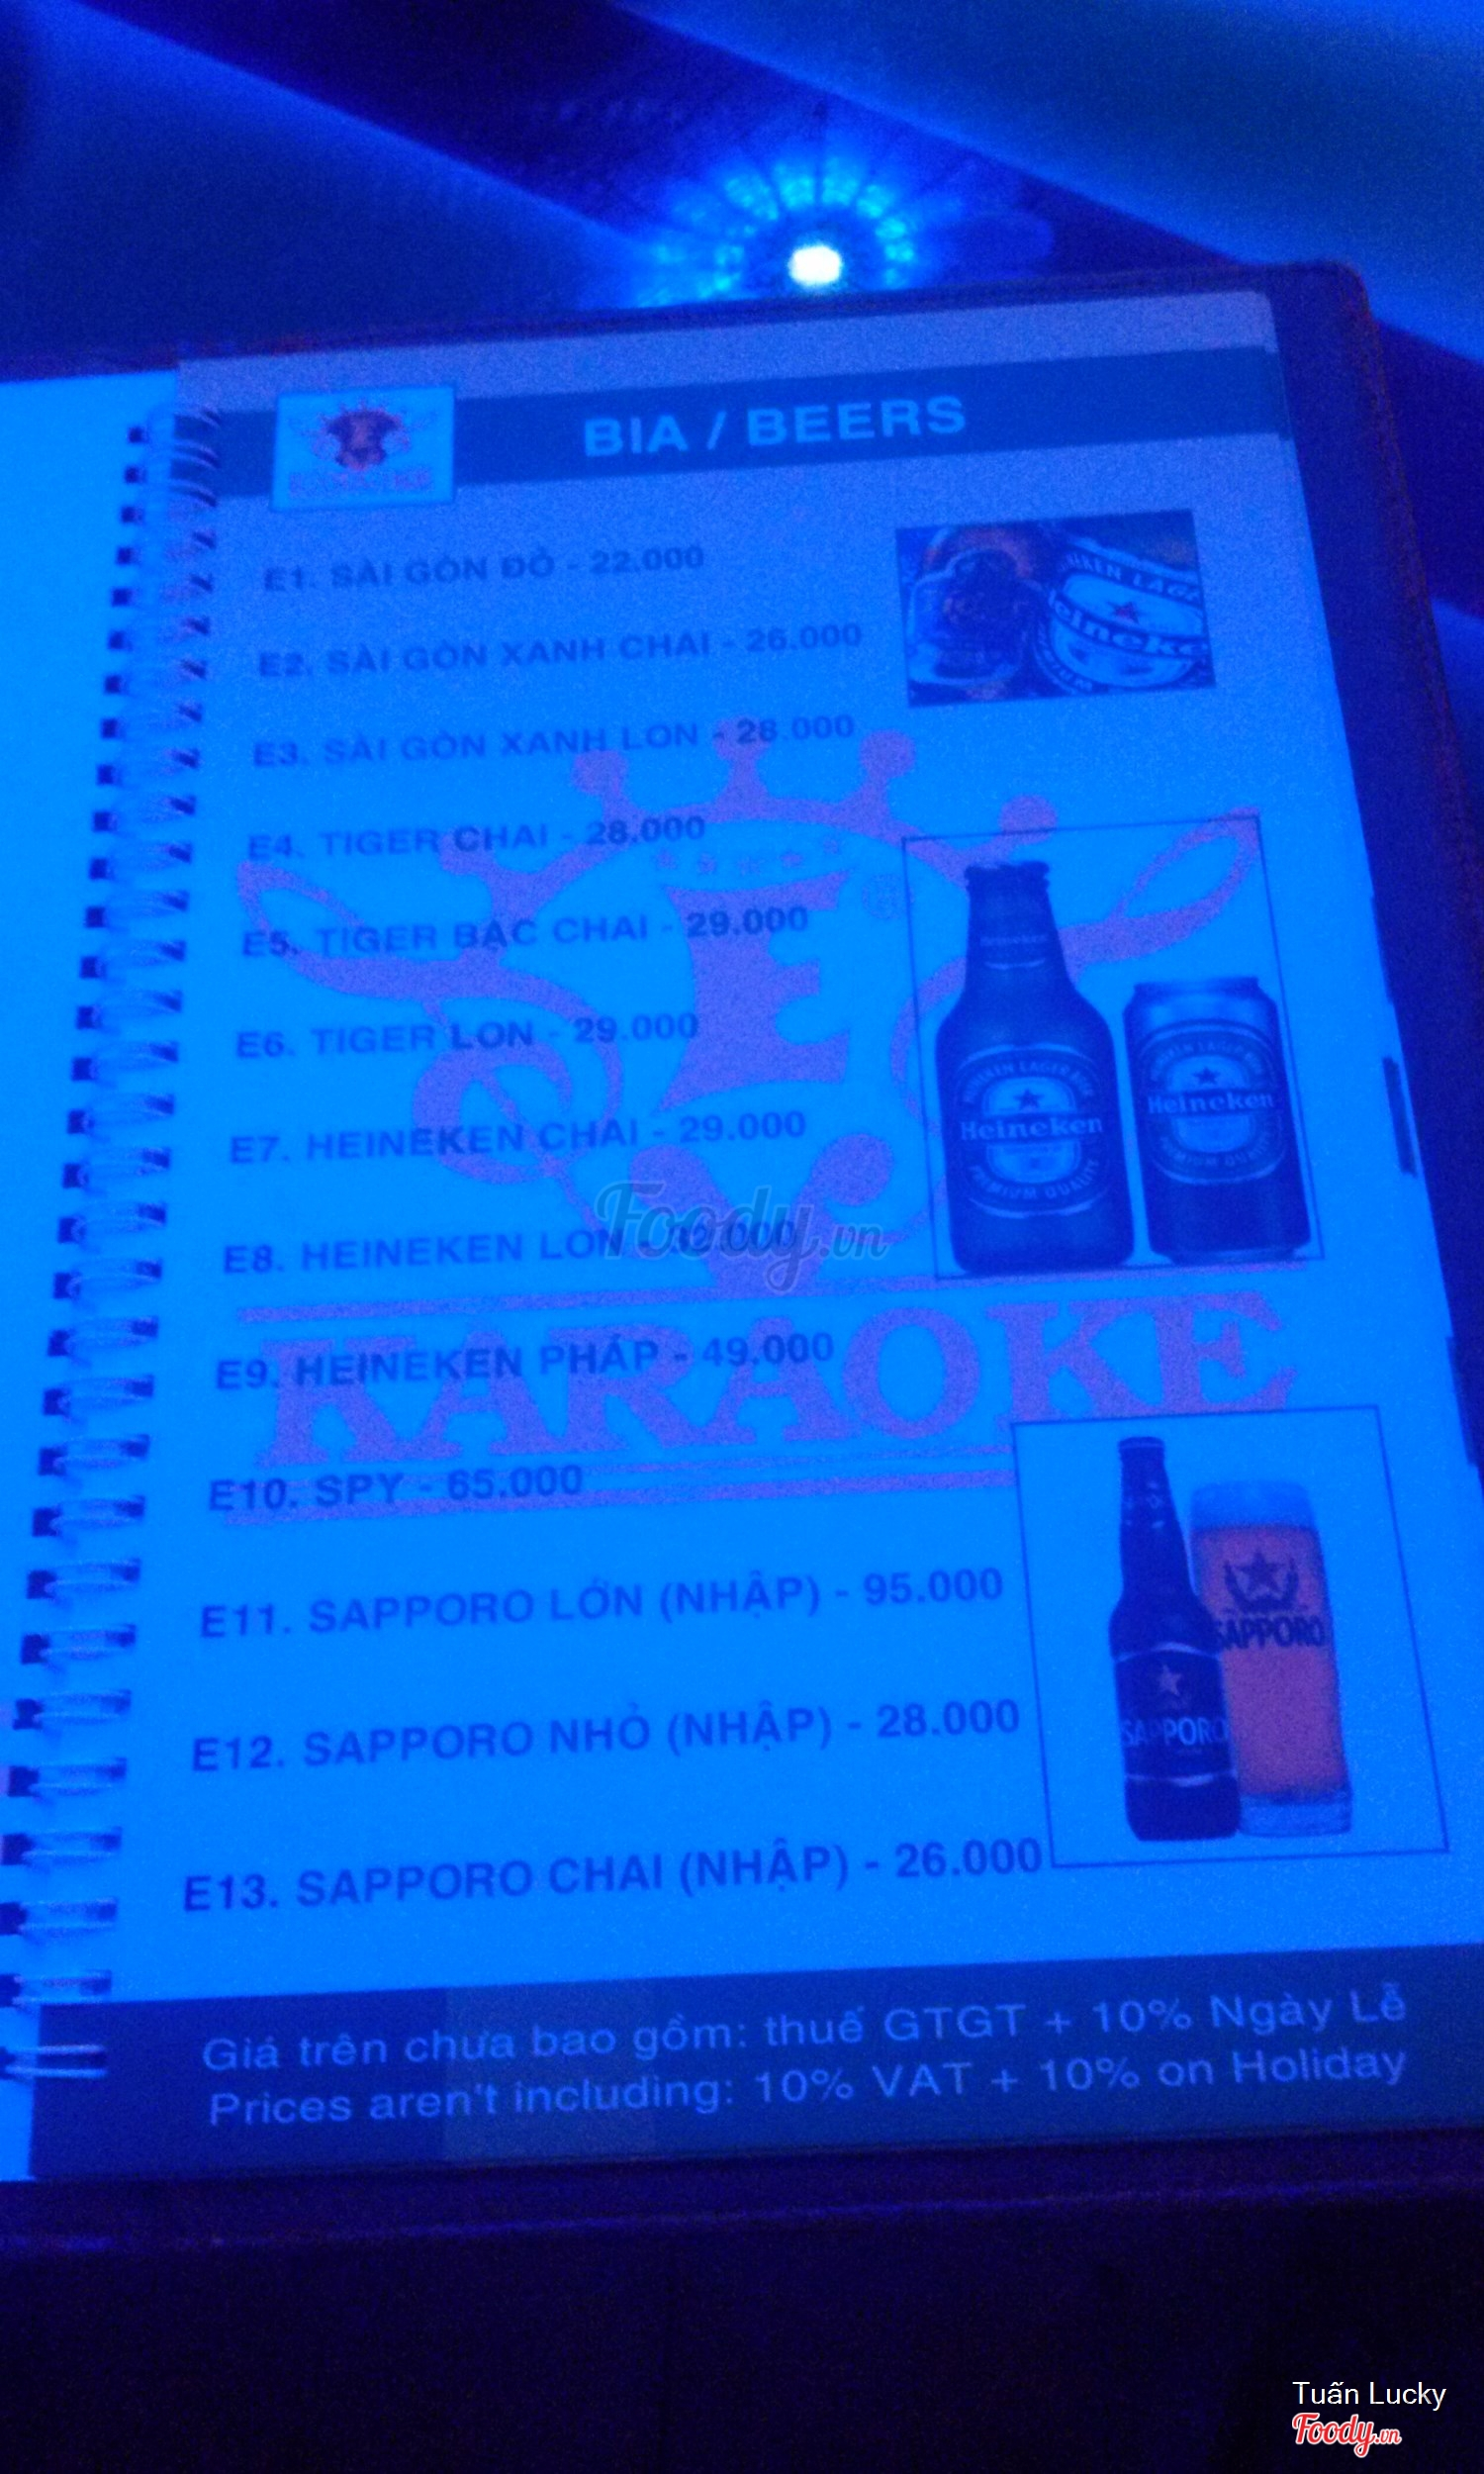 BIA / BEERS
E1. SÀI GÒN ĐỎ - 22.000
E2. SÀI GÒN XANH CHAI - 26.000
E3. SÀI GÒN XANH LON - 28.000
E4. TIGER CHAI - 28.000
E5. TIGER BẠC CHAI - 29.000
E6. TIGER LON - 29.000
E7. HEINEKEN CHAI - 29.000
E8. HEINEKEN LON - 32.000
E9. HEINEKEN PHÁP - 49.000
E10. SPY - 65.000
E11. SAPPORO LỚN (NHẬP) - 95.000
E12. SAPPORO NHỎ (NHẬP) - 28.000
E13. SAPPORO CHAI (NHẬP) - 26.000
Heineken
Heineken
PREMIUM QUALITY
PREMIUM QUALITY
Foody.vn
KARAOKE
SAPPORO
SAPPORO
Giá trên chưa bao gồm: thuế GTGT + 10% Ngày Lễ
Prices aren't including: 10% VAT + 10% on Holiday
Tuấn Lucky
Foody.vn